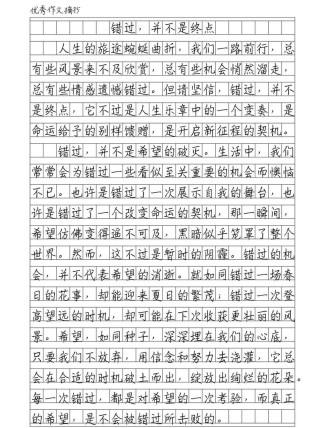 优秀作文摘抄
错过，并不是终点
人生的旅途蜿蜒曲折，我们一路前行，总
有些风景来不及欣赏，总有些机会悄然溜走，
总有些情感遗憾错过。但请坚信，错过，并不
是终点，它不过是人生乐章中的一个变奏，是
命运给予的别样馈赠，是开启新征程的契机。
错过，并不是希望的破灭。生活中，我们
常常会为错过一些看似至关重要的机会而懊恼
不已。也许是错过了一次展示自我的舞台，也
许是错过了一个改变命运的契机，那一瞬间，
希望仿佛变得遥不可及，黑暗似乎笼罩了整个
世界。然而，这不过是暂时的阴霾。错过的机
会，并不代表希望的消逝。就如同错过一场春
日的花事，却能迎来夏日的繁茂；错过一次登
高望远的时机，却可能在下次收获更壮丽的风
景。希望，如同种子，深深埋在我们的心底，
只要我们不放弃，用信念和努力去浇灌，它总
会在合适的时机破土而出，绽放出绚烂的花朵。
每一次错过，都是对希望的一次考验，而真正
的希望，是不会被错过所击败的。